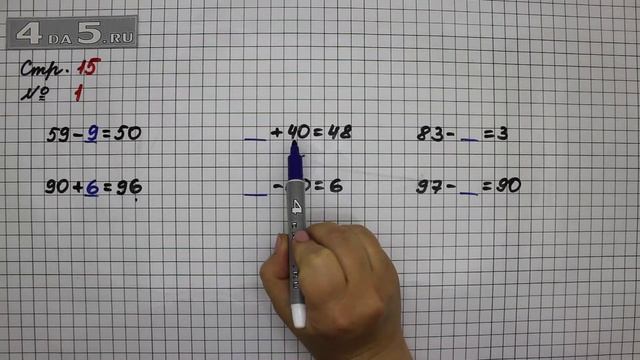 4 DA 5.RU
Стр. 15
№ 1
59 - 9 = 50
90 + 6 = 96
__ + 40 = 48
__ - 0 = 6
83 - __ = 3
97 - __ = 90
4